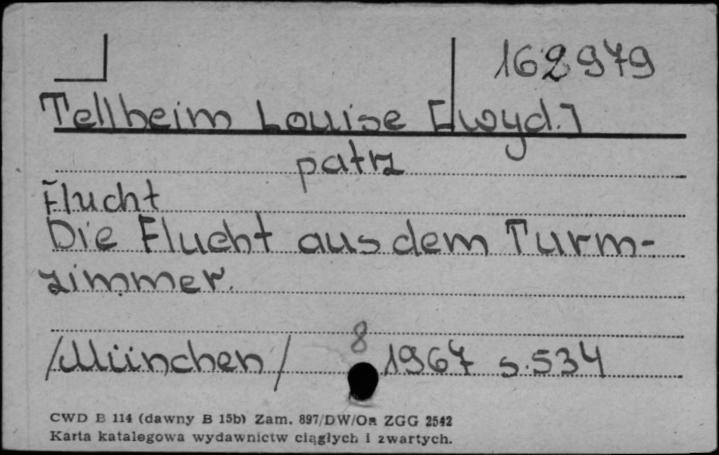 162979
Tellheim Louise [wyd.]
patrz
Flucht
Die Flucht aus dem Turm-
zimmer.
8
/München/ 1967 s. 534
CWD B 114 (dawny B 15b) Zam. 897/DW/Oa ZGG 2542
Karta katalogowa wydawnictw ciągłych i zwartych.